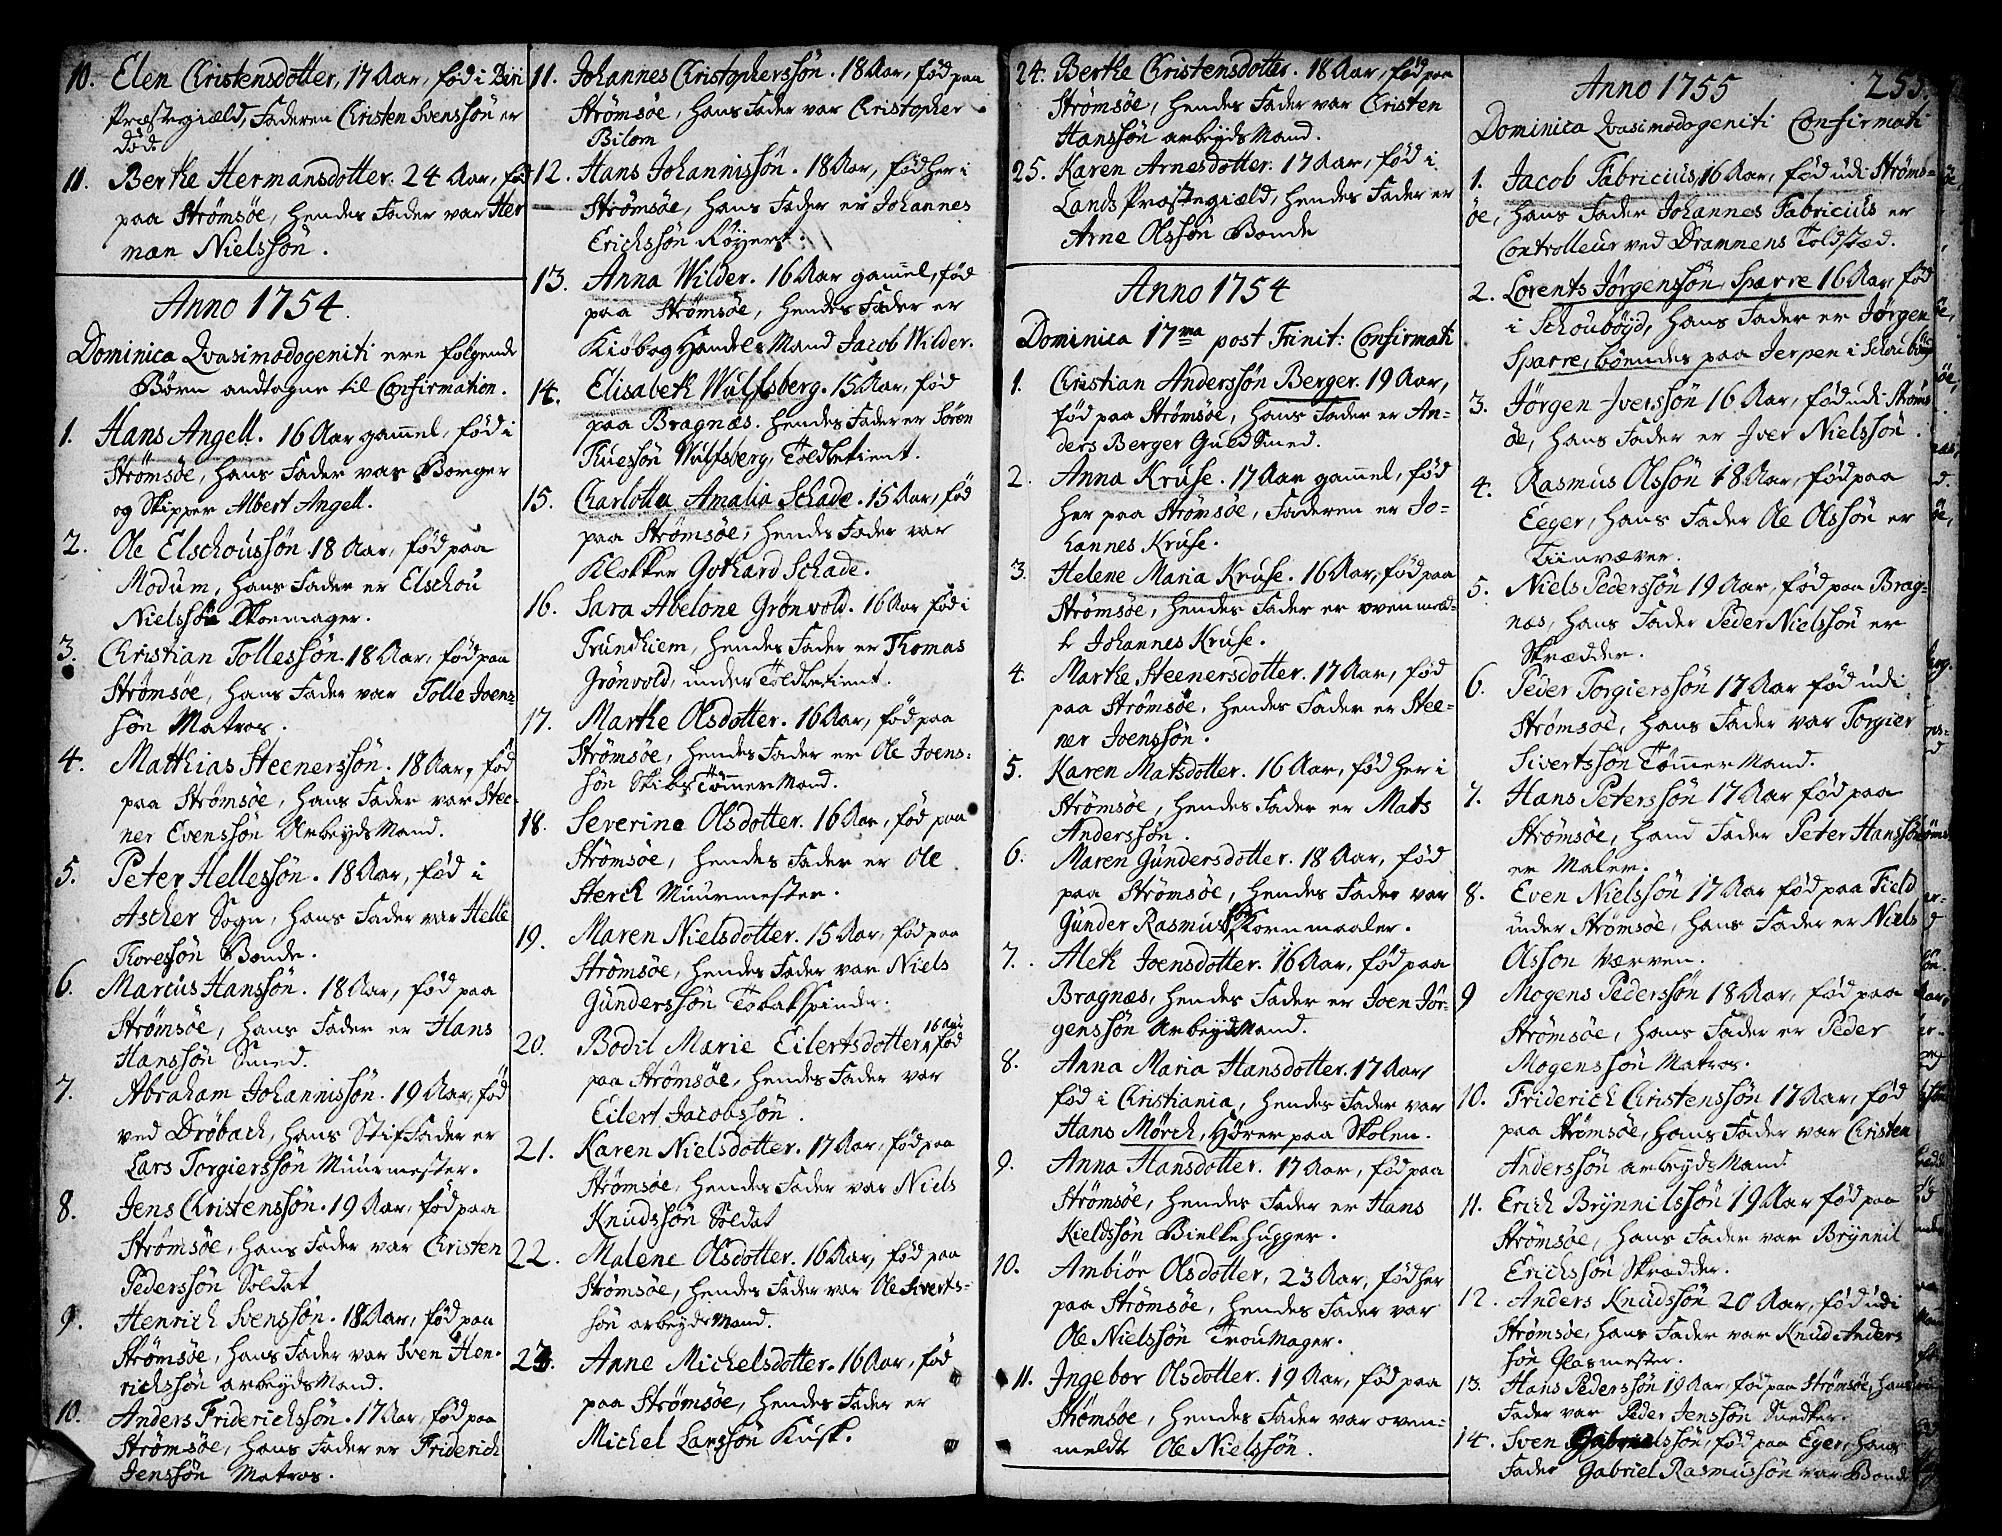 10. Elen Christensdotter, 17 Aar, fød i Biri
Præstegiæld, Faderen Christen Svenssøn er
død
11. Berthe Hermansdotter. 24 Aar, fød
paa Strømsøe, hendes Fader var Her
man Nielssøn.
Anno 1754.
Dominica Qvasimodogeniti ere følgende
Børn andtagne til Confirmation.
1. Hans Angell. 16 Aar gam̄el, fød i
Strømsøe, hans Fader var Borger
og Skipper Albert Angell.
2. Ole Elschoussøn 18 Aar, fød paa
Modum, hans Fader er Elschou
Nielssøn Skoemager.
3. Christian Tollessøn. 18 Aar, fød paa
Strømsøe, hans Fader var Tolle Joens
søn Matros.
4. Matthias Steenerssøn. 18 Aar, fød
paa Strømsøe, hans Fader var Stee-
ner Evenssøn Arbeyds Mand.
5. Peter Hellessøn. 18 Aar, fød i
Ascher Sogn, hans Fader var Helle
Thoressøn Bonde.
6. Marcus Hanssøn. 18 Aar, fød paa
Strømsøe, hans Fader er Hans
Hanssøn Smed.
7. Abraham Johannissøn. 19 Aar, fød
ved Drøbach, hans Stiffader er
Lars Torgierssøn Muurmester.
8. Jens Christenssøn. 19 Aar, fød paa
Strømsøe, hans Fader var Christen
Pederssøn Soldat
9. Henrich Svenssøn. 18 Aar, fød paa
Strømsøe, hans Fader var Sven Hen-
richssøn arbeyds Mand.
10. Anders Friderichssøn. 17 Aar, fød paa
Strømsøe, hans Fader er Friderich
Jenssøn Matros.
11. Johannes Christopherssøn. 18 Aar, fød paa
Strømsøe, hans Fader var Christopher
Bilom
12. Hans Johannissøn. 18 Aar, fød her i
Strømsøe, hans Fader er Johannes
Erichssøn Røyert.
13. Anna Wilder. 16 Aar gam̄el, fød
paa Strømsøe, hendes Fader er
Kiøb og Handels Mand Jacob Wilder.
14. Elisabeth Wulfsberg. 15 Aar, fød
paa Bragnæs. hendes Fader er Søren
Thuessøn Wulfsberg, Toldbetient.
15. Charlotta Amalia Schade. 15 Aar, fød
paa Strømsøe, hendes Fader var
Klokker Gothard Schade.
16. Sara Abelone Grønvold. 16 Aar fød i
Trundhiem, hendes Fader er Thomas
Grønvold, under Toldbetient.
17. Marthe Olsdotter. 16 Aar, fød paa
Strømsøe, hendes Fader er Ole Joens-
søn Skibs Tøm̄er Mand.
18. Severine Olsdotter. 16 Aar, fød paa
Strømsøe, hendes Fader er Ole
Sterch Muurmester.
19. Maren Nielsdotter. 15 Aar, fød paa
Strømsøe, hendes Fader var Niels
Gunderssøn Tobakspinder.
20. Bodil Marie Eilertsdotter, 16 Aar fød
paa Strømsøe, hendes Fader var
Eilert Jacobssøn.
21. Karen Nielsdotter. 17 Aar, fød paa
Strømsøe, hendes Fader var Niels
Knudssøn Soldat
22. Malene Olsdotter. 16 Aar, fød paa
Strømsøe, hendes Fader var Ole Siverts-
søn arbeyds Mand.
23. Anne Michelsdotter. 16 Aar, fød
paa Strømsøe, hendes Fader er
Michel Larssøn Kusk.
24. Berthe Christensdotter. 18 Aar, fød paa
Strømsøe, hendes Fader var Christen
Hanssøn arbeyds Mand.
25. Karen Arnesdotter. 17 Aar, fød i
Lands Præstegiæld, hendes Fader er
Arne Olssøn Bonde
Anno 1754
Dominica 17ma post Trinit: Confirmati
1. Christian Anderssøn Berger. 19 Aar,
fød paa Strømsøe, hans Fader er An-
ders Berger Guldsmed.
2. Anna Kruse. 17 Aar gam̄el, fød
her paa Strømsøe, Faderen er Jo-
hannes Kruse.
3. Helene Maria Kruse. 16 Aar, fød paa
Strømsøe, hendes Fader er oven meld-
t Johannes Kruse.
4. Marthe Steenersdotter. 17 Aar, fød
paa Strømsøe, hendes Fader er Stee-
ner Joenssøn.
5. Karen Matsdotter. 16 Aar, fød her i
Strømsøe, hendes Fader er Mats
Anderssøn.
6. Maren Gundersdotter. 18 Aar, fød
paa Strømsøe, hendes Fader var
Gunder Rasmussøn Kornmaaler.
7. Aleth Joensdotter. 16 Aar, fød paa
Bragnæs, hendes Fader er Joen Jør-
genssøn Arbeyds Mand.
8. Anna Maria Hansdotter. 17 Aar
fød i Christiania, hendes Fader var
Hans Mørch, Hører paa Skolen.
9. Anna Hansdotter. 17 Aar, fød paa
Strømsøe, hendes Fader er Hans
Kieldssøn Bielkehugger.
10. Ambiør Olsdotter, 23 Aar, fød her
paa Strømsøe, hendes Fader var
Ole Nielssøn Trou Mager.
11. Ingebor Olsdotter. 19 Aar, fød paa
Strømsøe, hendes Fader var oven-
meldt Ole Nielssøn.
Anno 1755 255
Dominica Qvasimodogeniti Confirmati
1. Jacob Fabricius, 16 Aar, fød udi Strøms-
øe, hans Fader Johannes Fabricius er
Controlleur ved Drammens Toldsted.
2. Lorents Jørgenssøn Sparre 16 Aar, fød
i Schoubøyd, hans Fader er Jørgen
Sparre, boendes paa Jerpen i Schoubøyd
3. Jørgen Iverssøn 16 Aar, fød udi Strøms
øe, hans Fader er Iver Nielssøn.
4. Rasmus Olssøn 18 Aar, fød paa
Eeger, hans Fader Ole Olssøn er
Tiinvæver.
5. Niels Pederssøn 19 Aar, fød paa Brag-
næs, hans Fader Peder Nielssøn er
Skrædder.
6. Peder Torgierssøn 17 Aar fød udi
Strømsøe, hans Fader var Torgier
Sivertssøn Tøm̄er Mand.
7. Hans Peterssøn 17 Aar fød paa
Strømsøe, hand Fader Peter Hanssøn
er Maler.
8. Even Nielssøn 17 Aar fød paa Field
under Strømsøe, hans Fader er Niels
Olsson Værven.
9 Mogens Pederssøn 18 Aar, fød paa
Strømsøe, hans Fader er Peder
Mogenssøn Matros.
10. Friderich Christenssøn 17 Aar, fød
paa Strømsøe, hans Fader var Christen
Anderssøn arbeyds Mand
11. Erich Brynnilssøn 19 Aar fød paa
Strømsøe, hans Fader var Brynnil
Erichssøn Skrædder.
12. Anders Knudssøn 20 Aar, fød udi
Strømsøe, hans Fader var Knud Anders
søn Glasmester.
13. Hans Pederssøn 19 Aar, fød paa Strømsøe, hans
Fader var Peder Jenssøn Snedker.
14. Sven Gabrielssøn, fød paa Eger, hans
Fader Gabriel Rasmussøn var Bonde